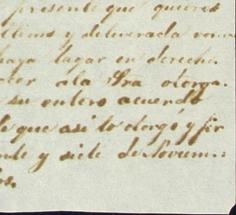 presente que quieres
y deliverada
haya lugar en derecho
á la Sra otorga
su entero acuerdo
que asi lo otorgó y fir
y siete de Novem